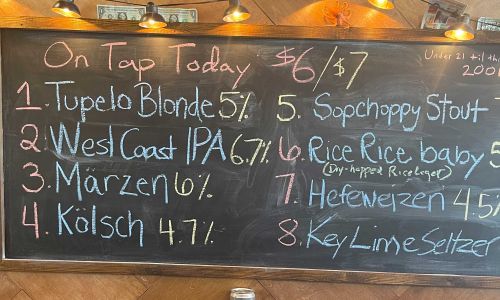 On Tap Today $6/$7
Under 21 til
1. Tupelo Blonde 5%
2. West Coast IPA 6.7%
3. Märzen 6%
4. Kölsch 4.7%
5. Sopchoppy Stout
6. Rice Rice baby 5
(Dry-hopped Rice Lager)
7. Hefeweizen 4.5%
8. Key Lime Seltzer